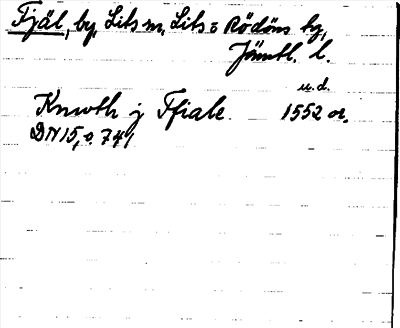 Fjäl, by, Lits sn, Lits o Rödöns tg,
Jämtl. l.
u.d.
Knwth j Ffiale. 1552 or.
DN 15, s. 741